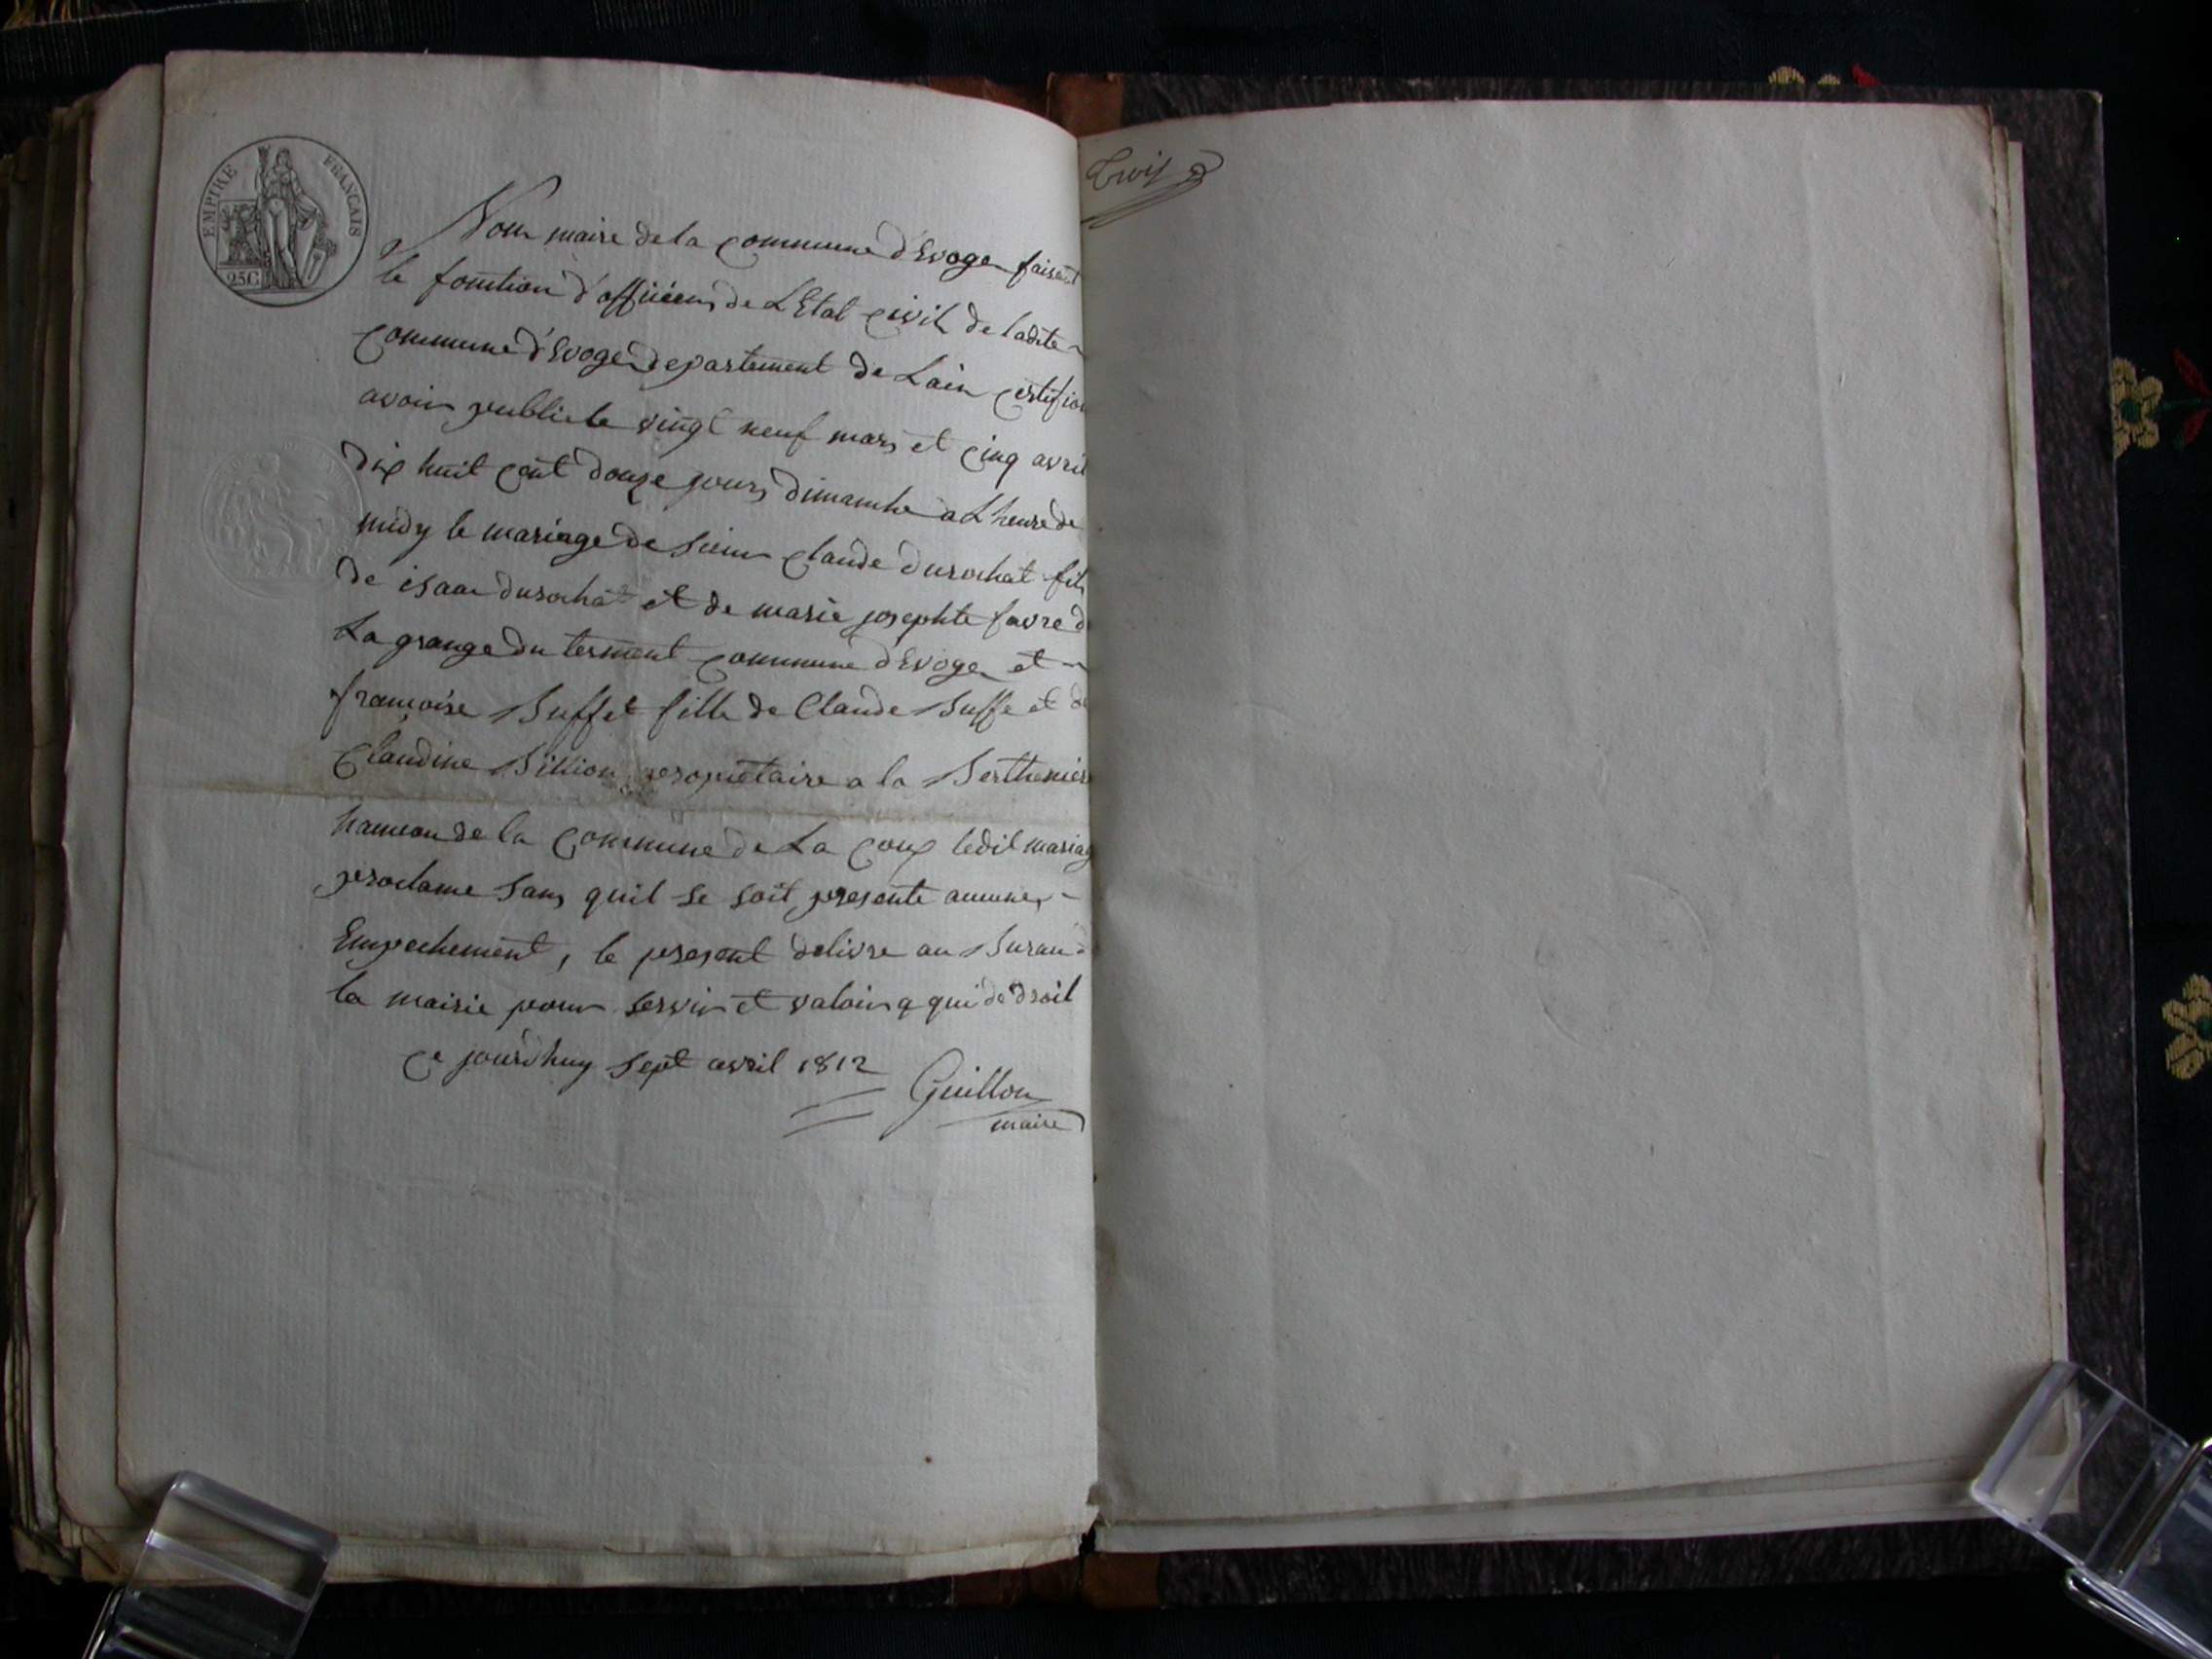 EMPIRE FRANÇAIS
25C
Nous maire de la commune d'Evoge faisant
le fonction d'officiers de L'Etat civil de ladite
commune d'Evoge departement de Lain certifion
avoir publie le vingt neuf mars et cinq avril
dix huit cent douze jours dimanche a L'heure de
midy le mariage de sieur claude durochat fils
de isaac durochat et de marie josephte favre d
La grange du terment commune d'Evoge et
francoise Buffet fille de Claude Buffe et de
Claudine Billion propriétaire a la Berthenier
hameau de la Commune de La Coux ledit mariag
proclame sans quil se soit presente aucunes
Empechement, le present delivre au Bureau d
la mairie pour servir et valoir a qui de droit
ce jourdhuy sept avril 1812
Guillon
maire